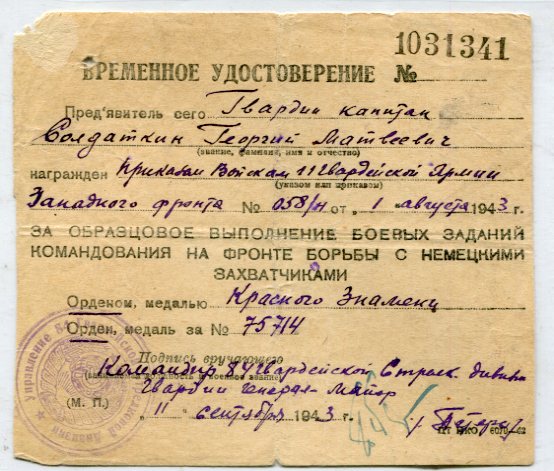 1031341
ВРЕМЕННОЕ УДОСТОВЕРЕНИЕ №
Пред'явитель сего Гвардии капитан
Солдаткин Георгий Матвеевич
(звание, фамилия, имя и отчество)
награжден Приказом Войскам 11 Гвардейской Армии
(указом или приказом)
Западного фронта № 058/н от „ 1 августа 1943 г.
ЗА ОБРАЗЦОВОЕ ВЫПОЛНЕНИЕ БОЕВЫХ ЗАДАНИЙ
КОМАНДОВАНИЯ НА ФРОНТЕ БОРЬБЫ С НЕМЕЦКИМИ
ЗАХВАТЧИКАМИ
Орденом, медалью Красного Знамени
Орден, медаль за № 75714
Подпись вручающего
Командир 84 Гвардейской Стрелк. дивизии
Гвардии Генерал-Майор
(М. П.) „ 11 " сентября 1943 г.